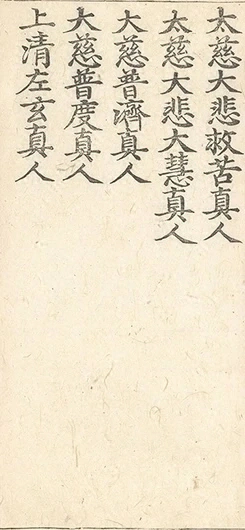 太慈大悲救苦真人
太慈大悲大慧真人
大慈普濟真人
大慈普度真人
上清左玄真人